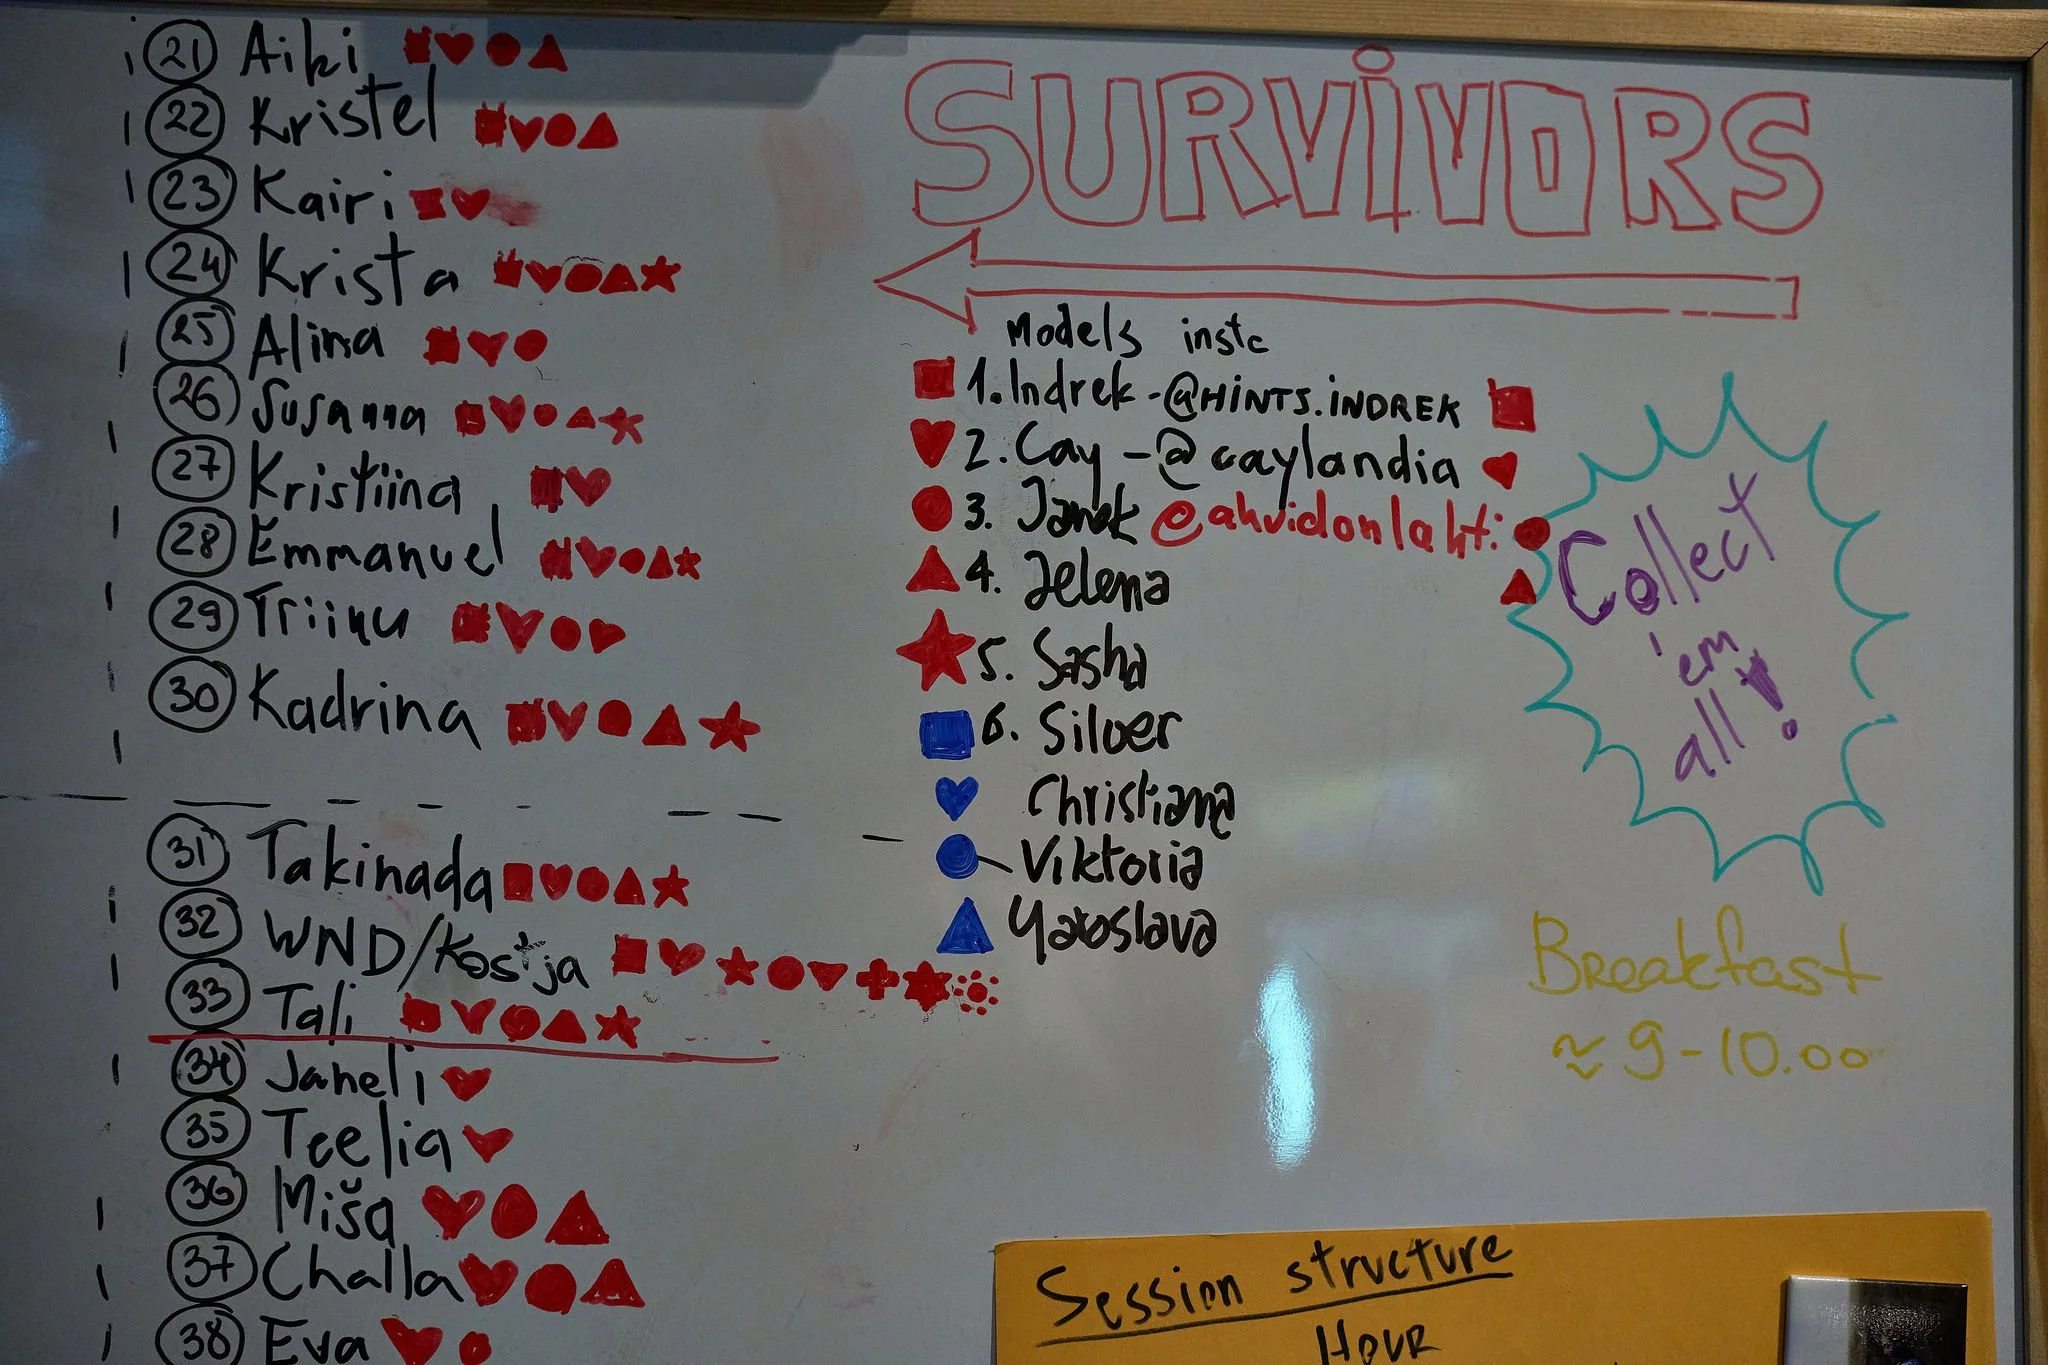 21 Aiki
22 Kristel
23 Kairi
24 Krista
25 Alina
26 Susanna
27 Kristiina
28 Emmanuel
29 Triinu
30 Kadrina
31 Takinada
32 WND/Kostja
33 Tali
34 Janeli
35 Teelia
36 Miša
37 Challa
38 Eva
SURVIVORS
Models insta
1. Indrek - @HINTS.INDREK
2. Cay - @caylandia
3. Janek @ahvidonlahti
4. Jelena
5. Sasha
6. Silver
Christiana
Viktoria
Yaroslava
Collect
'em
all!
Breakfast
≈ 9-10.00
Session structure
HOUR